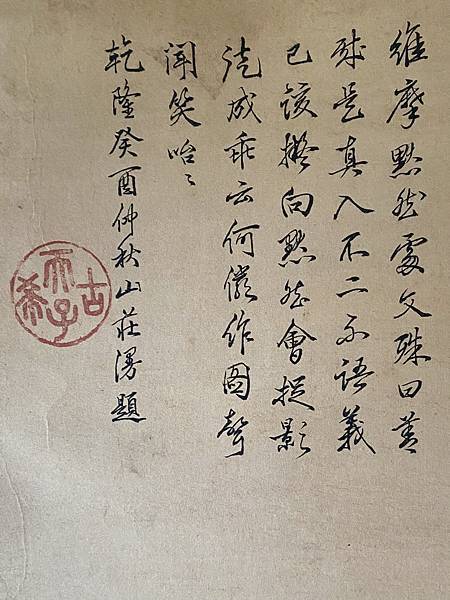 維摩默然處文殊曰善
哉是真入不二不語義
已該擬向默然會捉影
成乖云何作圖聲
聞笑咍〻
乾隆癸酉仲秋山莊漫題
古希天子